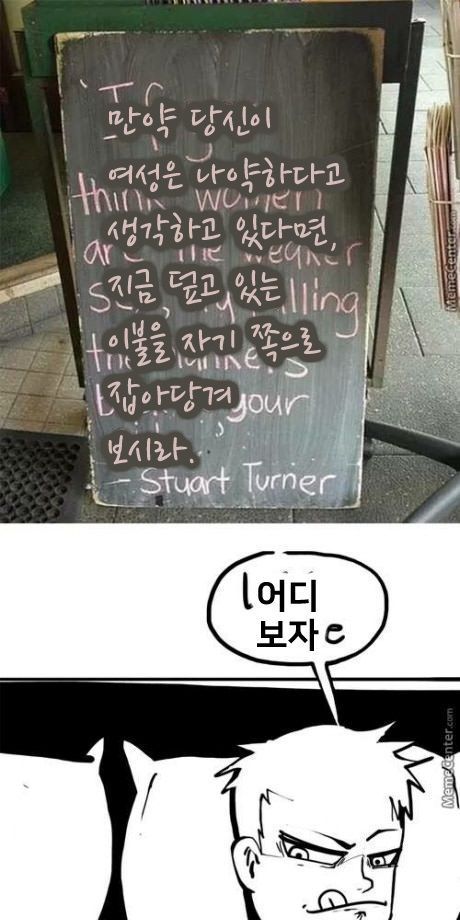 만약 당신이
여성은 나약하다고
생각하고 있다면,
지금 덮고 있는
이불을 자기 쪽으로
잡아당겨
보시라.
think women
your
- Stuart Turner
MemeCenter.com
어디
보자
MemeCenter.com